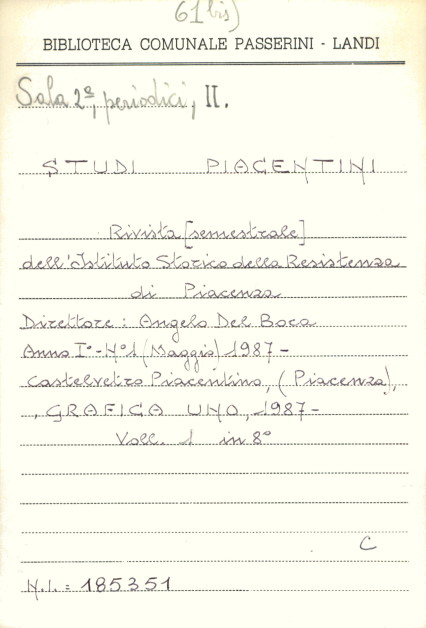 61 bis)
BIBLIOTECA COMUNALE PASSERINI - LANDI
Sala 2ª, periodici, II.
STUDI PIACENTINI
Rivista [semestrale]
dell'Istituto Storico della Resistenza
di Piacenza
Direttore: Angelo Del Boca
Anno I° - N°1 (Maggio) 1987 -
Castelvetro Piacentino, (Piacenza),
, GRAFICA UNO, 1987 -
Voll. 1 in 8°
C
N.I. = 185351